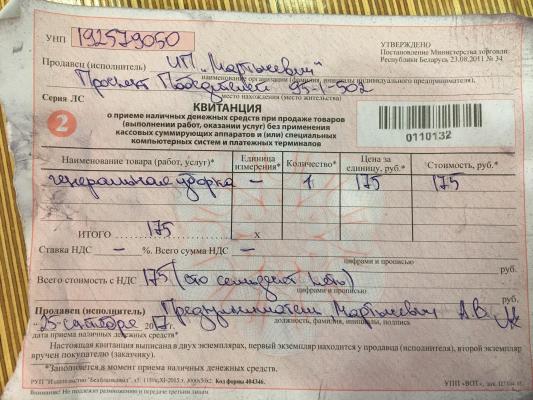 УНП 192579050
УТВЕРЖДЕНО
Постановление Министерства торговли
Республики Беларусь 23.08.2011 № 34
Продавец (исполнитель) ИП "Мартысевич"
наименование организации (фамилия, инициалы индивидуального предпринимателя),
Проспект Победителей 95-1-502
место нахождения (место жительства)
Серия ЛС
КВИТАНЦИЯ
2
о приеме наличных денежных средств при продаже товаров
(выполнении работ, оказании услуг) без применения
кассовых суммирующих аппаратов и (или) специальных
компьютерных систем и платежных терминалов
0110132
Наименование товара (работ, услуг)* Единица измерения* Количество* Цена за единицу, руб.* Стоимость, руб.*
генеральная уборка – 1 175 175
ИТОГО 175 х
Ставка НДС – %. Всего сумма НДС –
цифрами и прописью
руб.
Всего стоимость с НДС 175 (сто семьдесят пять)
цифрами и прописью
руб.
Продавец (исполнитель) Предприниматель Мартысевич А.В.
должность, фамилия, инициалы, подпись
" 25 " октября 2017 г.
дата приема наличных денежных средств*
Настоящая квитанция выписана в двух экземплярах, первый экземпляр находится у продавца (исполнителя), второй экземпляр
вручен покупателю (заказчику).
*Заполняется в момент приема наличных денежных средств.
РУП "Издательство "Белбланкавыд". Код формы 404346.
УПП «ВОТ»
Внимание! Не подлежит размножению и передаче третьим лицам.